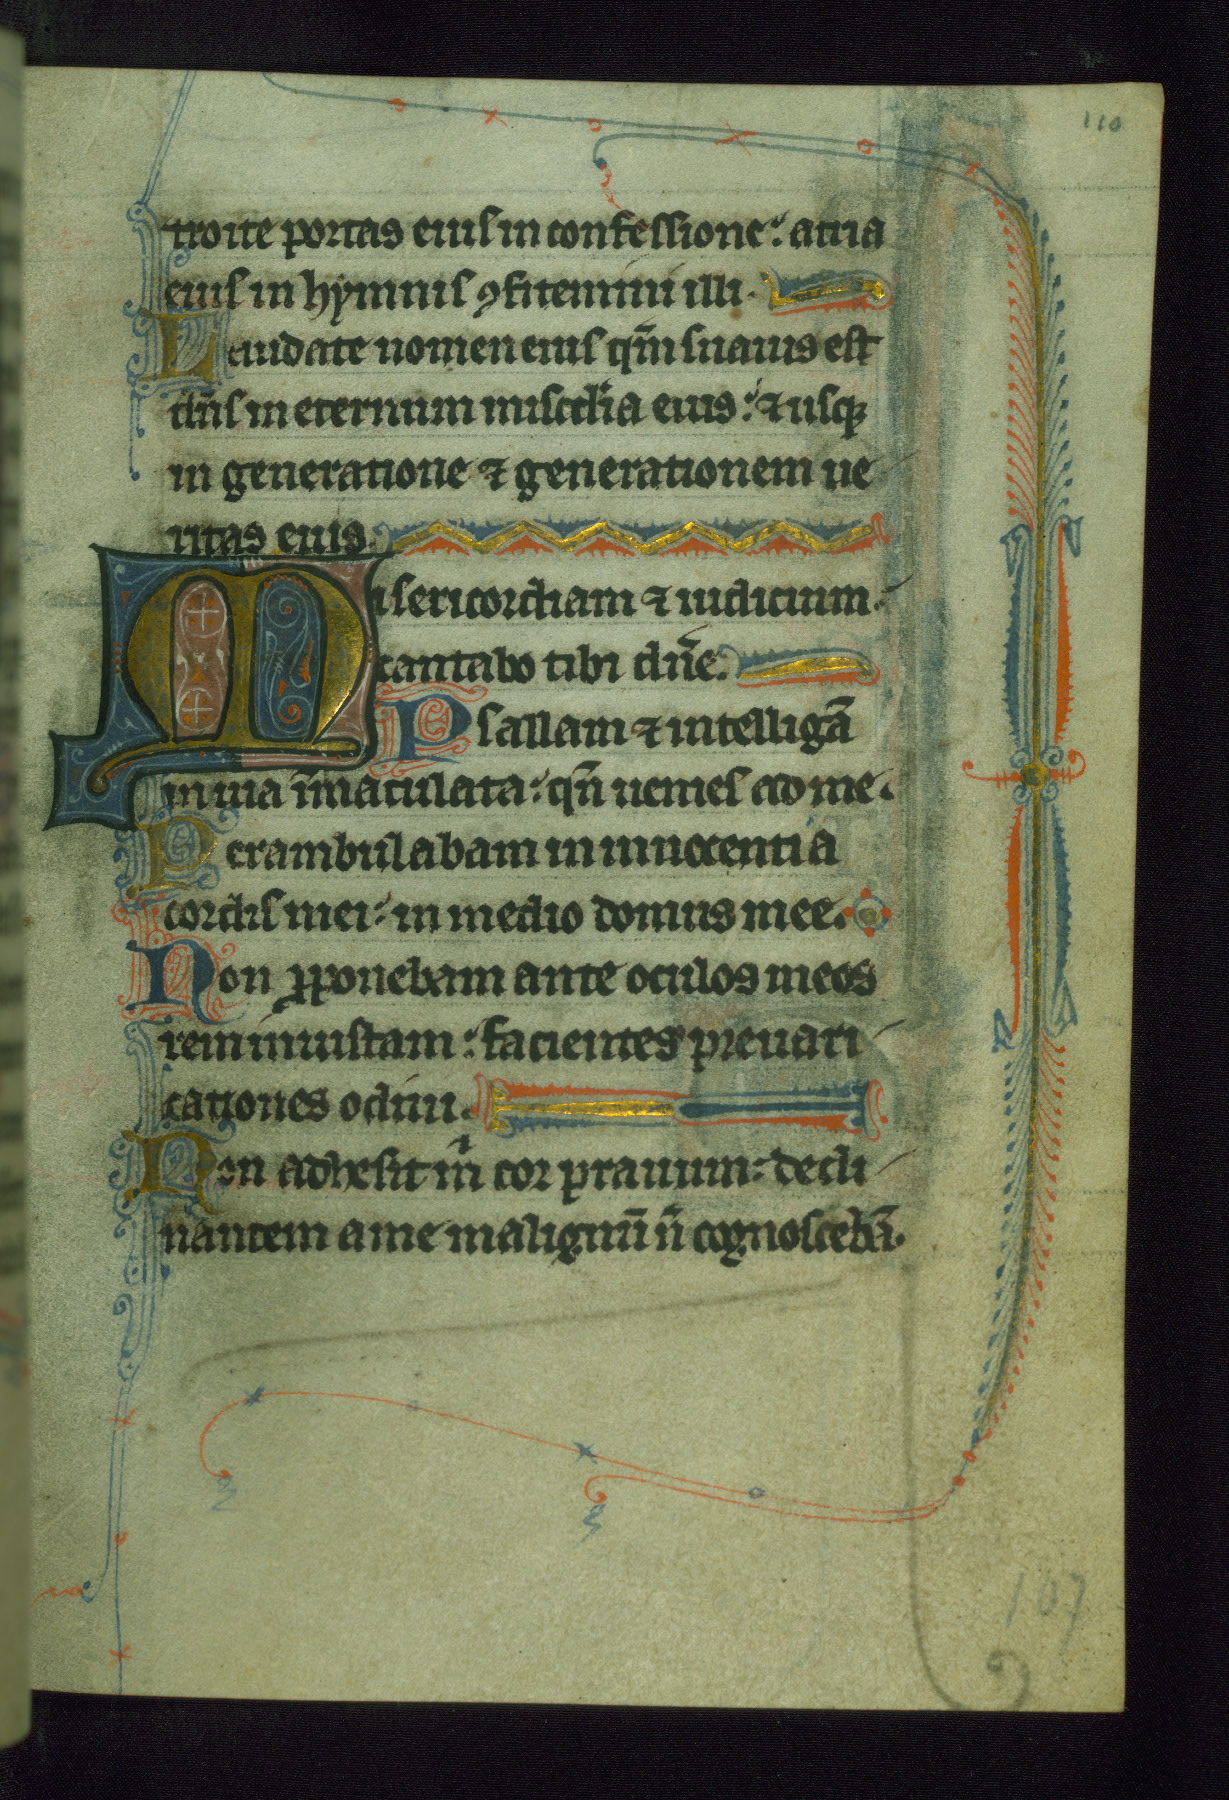 110
troite portas eius in confessione: atria
eius in hymnis ꝯfitemini illi.
Laudate nomen eius qm̄ suauis est
dn̄s in eternum misc̄dia eius: ⁊ usqꝫ
in generatione ⁊ generationem ue
ritas eius.
Misericordiam ⁊ iudicium
cantabo tibi dn̄e.
Psallam ⁊ intelligā
in uia īmaculata: qn̄ uenies ad me.
Perambulabam in innocentia
cordis mei: in medio domus mee.
Non ꝓponebam ante oculos meos
rem iniustam: facientes preuari
cationes odiui.
Non adhesit m̄ cor prauum: decli
nantem a me malignū n̄ cognoscebā.
107